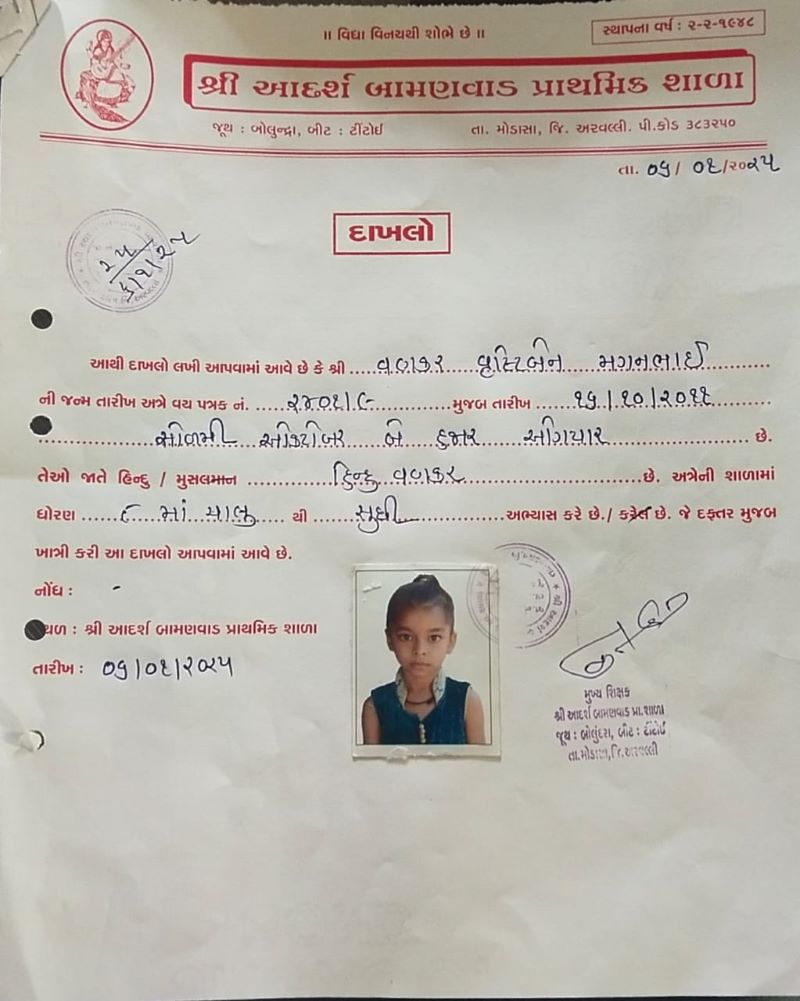 ॥ વિદ્યા વિનયથી શોભે છે ॥
સ્થાપના વર્ષ : ૨-૨-૧૯૪૮
શ્રી આદર્શ બામણવાડ પ્રાથમિક શાળા
જૂથ : બોલુન્દ્રા, બીટ : ટીંટોઈ
તા. મોડાસા, જિ. અરવલ્લી. પી.કોડ ૩૮૩૨૫૦
તા. ૦૬/ ૦૧/૨૦૨૫
દાખલો
૨૫
૬/૧/૨૫
આથી દાખલો લખી આપવામાં આવે છે કે શ્રી ....વણકર.... મગનભાઈ....
ની જન્મ તારીખ અત્રે વય પત્રક નં. ....૨૪૦૧/૯....મુજબ તારીખ ....૧૬/૧૦/૨૦૧૧....
....સોળમી ઓક્ટોબર બે હજાર અગિયાર.... છે.
તેઓ જાતે હિન્દુ / મુસલમાન ....હિન્દુ વણકર....છે. અત્રેની શાળામાં
ધોરણ ....૮ માં ચાલુ.... થી ....સુધી....અભ્યાસ કરે છે./ કરેલ છે. જે દફતર મુજબ
ખાત્રી કરી આ દાખલો આપવામાં આવે છે.
નોંધ : -
સ્થળ : શ્રી આદર્શ બામણવાડ પ્રાથમિક શાળા
તારીખ : ૦૬/૦૧/૨૦૨૫
મુખ્ય શિક્ષક
શ્રી આદર્શ બામણવાડ પ્રા.શાળા
જૂથ : બોલુંદરા, બીટ : ટીંટોઈ
તા.મોડાસા,જિ.અરવલ્લી